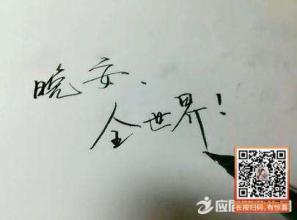 晚安、
全世界!
长按扫码,有惊喜